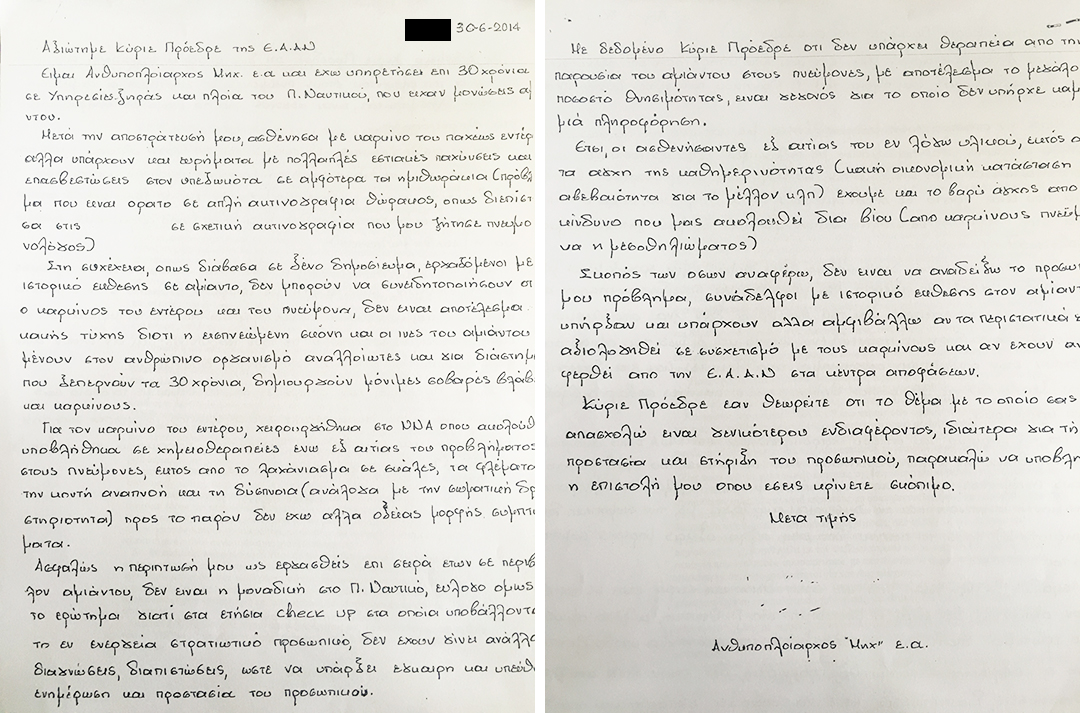 30-6-2014
Αξιώτιμε Κύριε Πρόεδρε της Ε.Α.ΑΝ
Ειμαι Ανθυποπλοίαρχος Μηχ. ε.α και εχω υπηρετήσει επι 30 χρόνια
σε Υπηρεσίες ξηράς και πλοία του Π. Ναυτικού, που ειχαν μονώσεις αμ
ντου.
Μετά την αποστράτευσή μου, ασθένησα με καρκίνο του παχέως εντέρ
αλλα υπάρχουν και ευρήματα με πολλαπλές εστιακές παχύνσεις και
επασβεστώσεις στον υπεζωκότα σε αμφότερα τα ημιθωράκια (πρόβλ
μα που ειναι ορατο σε απλή ακτινογραφια θώρακος, οπως διεπίστ
σα στις σε σχετική ακτινογραφία που μου ζήτησε πνευμο
νολόγος)
Στη συνέχεια, οπως διάβασα σε ξένο δημοσίευμα, εργαζόμενοι με
ιστορικό εκθεσης σε αμίαντο, δεν μπορούν να συνειδητοποιήσουν οτ
ο καρκίνος του εντέρου και του πνεύμονα, δεν ειναι αποτέλεσμα
κακής τύχης διοτι η εισπνεώμενη σκόνη και οι ινες του αμιάντου
μένουν στον ανθρώπινο οργανισμό αναλλοίωτες και για διάστημ
που ξεπερνούν τα 30 χρόνια, δημιουργούν μόνιμες σοβαρές βλάβ
και καρκίνους.
Για τον καρκίνο του εντέρου, χειρουργήθηκα στο ΝΝΑ οπου ακολούθ
υποβλήθηκα σε χημειοθεραπείες ενω εξ αιτίας του προβλήματος
στους πνεύμονες, εκτος απο το λαχάνιασμα σε σκάλες, τα φλέματα
την κοντή αναπνοή και τη δύσπνοια (ανάλογα με την σωματική δρ
στηριοτητα) προς το παρόν δεν εχω αλλα οξείας μορφής συμπτ
ματα.
Ασφαλώς η περιπτωσή μου ως εργασθείς επι σειρά ετων σε περιβ
λον αμιάντου, δεν ειναι η μοναδική στο Π. Ναυτικό, ευλογο ομως
το ερώτημα γιατί στα ετήσια check up στα οποια υποβάλλοντα
το εν ενεργεία στρατιωτικό προσωπικό, δεν εχουν γίνει ανάλλο
διαγνώσεις, διαπιστώσεις, ωστε να υπάρξει εγκαιρη και υπεύθ
ενημέρωση και προστασία του προσωπικού.
Με δεδομένο Κύριε Πρόεδρε οτι δεν υπάρχει θεραπεία απο την
παρουσία του αμιάντου στους πνεύμονες, με αποτέλεσμα το μεγάλο
ποσοστό θνησιμότητας, ειναι γεγονός για το οποίο δεν υπήρχε καμ
μιά πληροφόρηση.
Ετσι, οι ασθενήσαντες εξ αιτίας του εν λόγω υλικού, εκτός α
τα αγχη της καθημερινότητας (κακή οικονομική κατάσταση
αβεβαιότητα για το μέλλον κλπ) εχουμε και το βαρύ άγχος απο
κίνδυνο που μας ακολουθεί δια βίου (απο καρκίνους πνεύμ
να η μεσοθηλιώματος)
Σκοπός των οσων αναφέρω, δεν ειναι να αναδείξω το προσω
μου πρόβλημα, συνάδελφοι με ιστορικό εκθεσης στον αμίαντ
υπήρξαν και υπάρχουν αλλα αμφιβάλλω αν τα περιστατικά
αξιολογηθεί σε συσχετισμό με τους καρκίνους και αν εχουν αν
φερθεί απο την Ε.Α.Α.Ν στα κέντρα αποφάσεων.
Κύριε Πρόεδρε εαν θεωρείτε οτι το θέμα με το οποίο σας
απασχολώ ειναι γενικότερου ενδιαφέροντος, ιδιαίτερα για τη
προστασία και στήριξη του προσωπικού, παρακαλώ να υποβλη
η επιστολή μου οπου εσεις κρίνετε σκόπιμο.
Μετα τιμής
Ανθυποπλοίαρχος "Μηχ" ε.α.